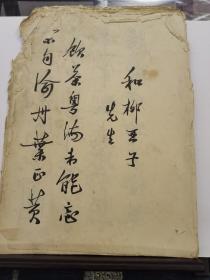 和柳亚子
先生
飲茶粤海未能忘
索句渝州葉正黄